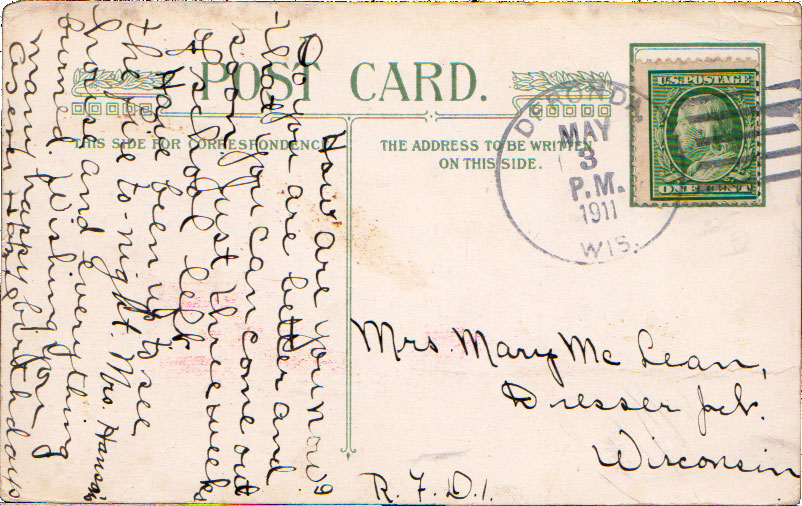 POST CARD.
THIS SIDE FOR CORRESPONDENCE
THE ADDRESS TO BE WRITTEN
ON THIS SIDE.
U.S. POSTAGE
ONE CENT
DERONDA,
MAY
3
P.M.
1911
WIS.
How are you now?
you are better and
that you can come out
soon. Just three weeks
of school left.
Have been up to see
the fire to-night. Mrs. Hansen's
house and everything
burned. Wishing you
many happy birthdays
Mrs. Mary Mc Lean,
Dresser Jct.
Wisconsin
R. F. D. 1.